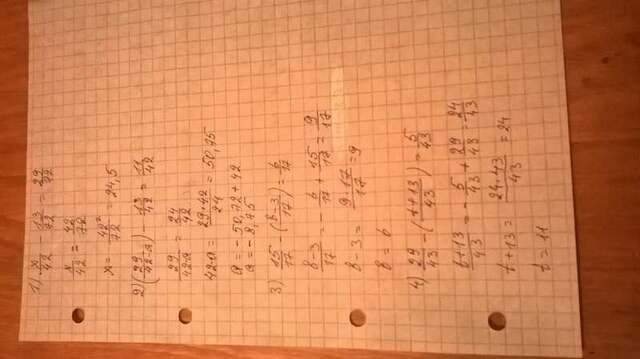 1) x/42 - 13/72 = 29/72
x/42 = 42/72
x = 42²/72 = 24,5
2) (29/42-a) - 13/42 = 11/42
29/42-a = 24/42
42-a = 29·42/24 = 50,75
a = -50,72 + 42
a = -8,75
3) 15/17 - (b-3/17) = 6/17
b-3/17 = -6/17 + 15/17 = 9/17
b-3 = 9·17/17 = 9
b = 6
4) 29/43 - (t+13/43) = 5/43
t+13/43 = -5/43 + 29/43 = 24/43
t+13 = 24·43/43 = 24
t = 11